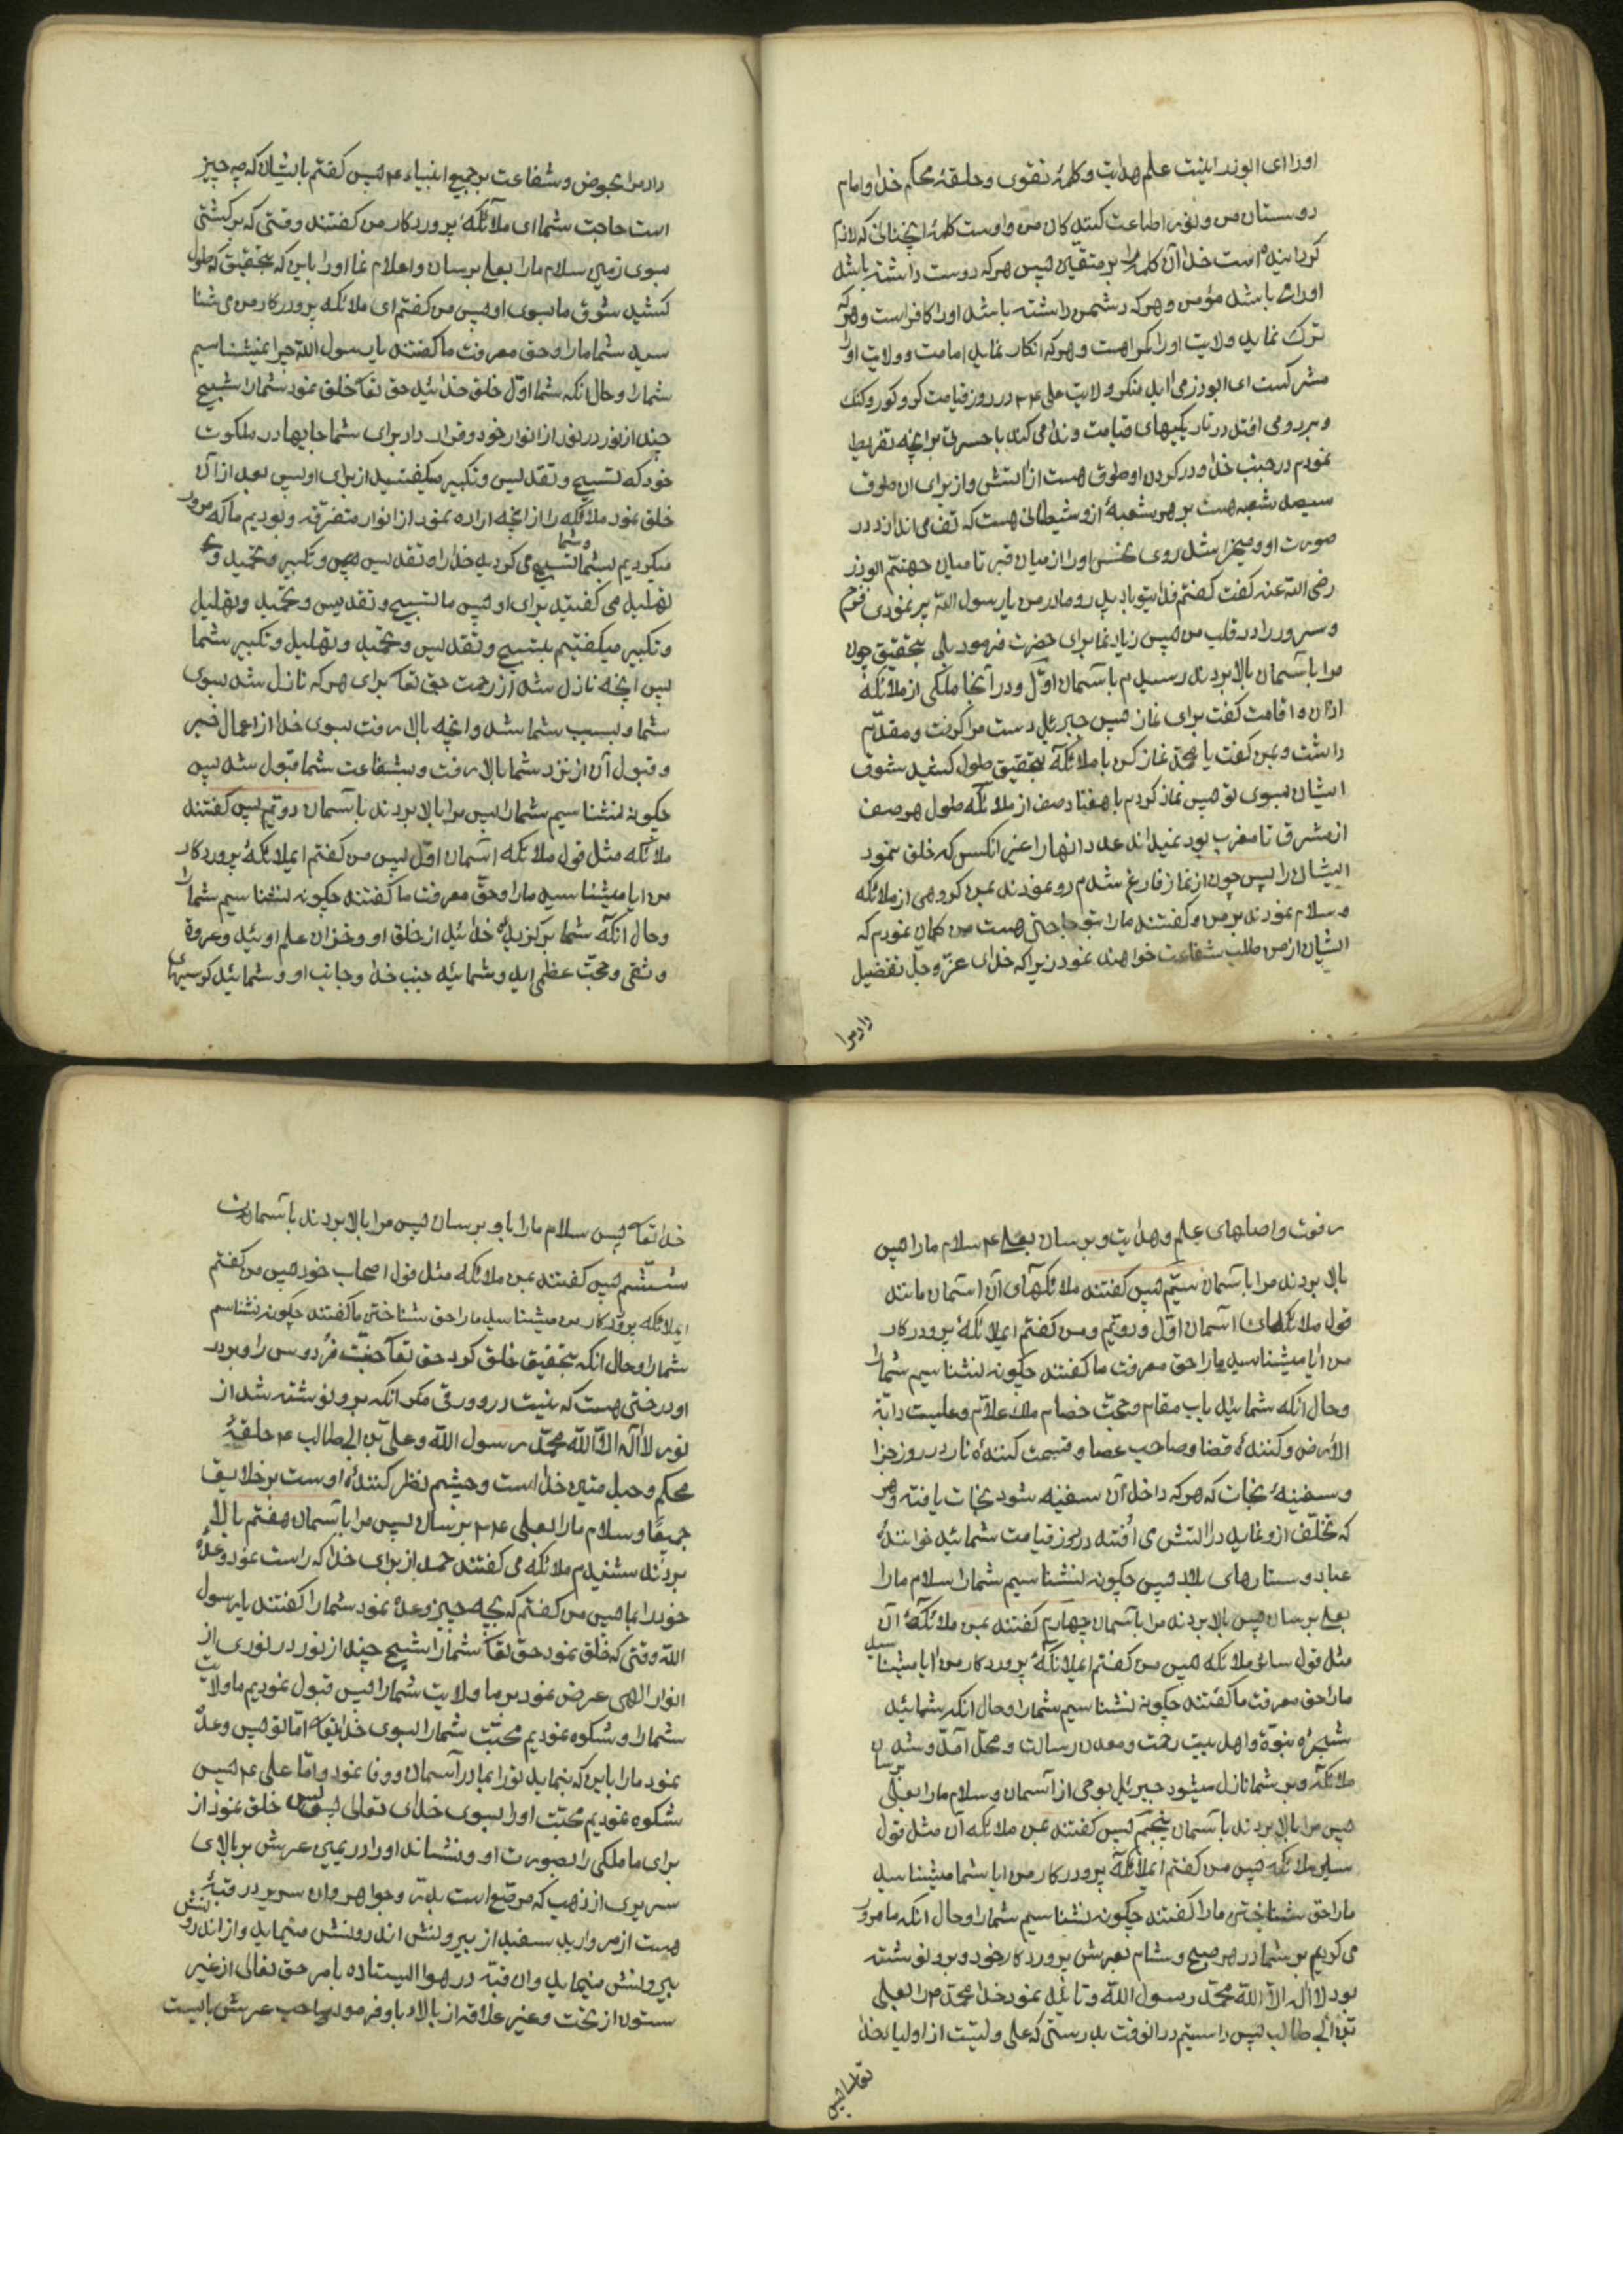 او را ای ابوذر اینست علم هدایت و کلمهٔ تقوی و حلقهٔ محکم خدا و امام
دوستان من و نور اطاعت کنندکان من و اوست کلمهٔ انچنانی که لازم
کردانیده است خدا آن کلمه را بر متقین پس هر که دوست داشته باشد
او را باشد مؤمن و هر که دشمن داشته باشد او را کافر است و هر که
ترک نماید ولایت او را کمراهست و هر که انکار نماید امامت و ولایت او را
مشرکست ای ابوذر می اید منکر ولایت علی در روز قیامت کر و کور و کنک
و برو می افتد در تاریکیهای قیامت و ندا می کند یا حسرتی بر انچه تفریط
نمودم در جنب خدا و در کردن او طوقی هست از آتش و از برای ان طوق
سیصد شعبه هست بر هر شعبهٔ ازو شیطانی هست که تف می اندازد در
صورت او و میخراشد روی نحس او را از میان قبر تا میان جهنم ابوذر
رضی الله عنه کفت کفتم فدای تو باد پدر و مادر من یا رسول الله پر نمودی فرح
و سرور را در قلب من پس زیاد نما برای حضرت فرمود بلی بتحقیق چون
مرا باسمان بالا بردند رسیدم باسمان اول و در آنجا ملکی از ملائکه
اذان و اقامت کفت برای نماز پس جبرئیل دست مرا کرفت و مقدم
داشت و بمن کفت یا محمد نماز کن با ملائکه بتحقیق طول کشید شوق
ایشان بسوی تو پس نماز کردم با هفتاد صف از ملائکه طول هر صف
از مشرق تا مغرب بود نمیداند عدد انها را غیر انکس که خلق نمود
ایشان را پس چون از نماز فارغ شدم رو نمودند بمن کروهی از ملائکه
و سلام نمودند بر من و کفتند ما را بتو حاجتی هست من کمان نمودم که
ایشان از من طلب شفاعت خواهند نمود زیرا که خدای عز و جل تفضیل
داد مرا
داد مرا بحوض و شفاعت بر جمیع انبیاء پس کفتم بایشان که چه چیز
است حاجت شما ای ملائکهٔ پروردکار من کفتند وقتی که برکشتی
بسوی زمین سلام ما را بعلی برسان و اعلام نما او را باین که بتحقیق که طول
کشید شوق ما بسوی او پس من کفتم ای ملائکه پروردکار من می شنا
سید شما ما را و حق معرفت ما کفتند یا رسول الله چرا نمیشناسیم
شما را و حال انکه شما اول خلق خدائید حق تعا خلق نمود شما را شبیح
چند از نور در نور از انوار خود و قرار داد برای شما جایها در ملکوت
خود که تسبیح و تقدیس و تکبیر میکفتید از برای او پس بعد از آن
خلق نمود ملائکه را از انچه اراده نمود از انوار متفرقه و بودیم ما که مرور
میکردیم بشما و شما تسبیح می کردید خدا را و تقدیس و تکبیر و تحمید و
تهلیل می کفتید برای او پس ما تسبیح و تقدیس و تحمید و تهلیل
و تکبیر میکفتیم بتسبیح و تقدیس و تحمید و تهلیل و تکبیر شما
پس انچه نازل شد از رحمت حق تعا برای هر که نازل شد بسوی
شما و بسبب شما شد و انچه بالا رفت بسوی خدا از اعمال خیر
و قبول آن از نزد شما بالا رفت و بشفاعت شما قبول شد پس
چکونه نشناسیم شما را پس مرا بالا بردند باسمان دویم پس کفتند
ملائکه مثل قول ملائکه اسمان اول پس من کفتم ایملائکهٔ پروردکار
من ایا میشناسید ما را و حق معرفت ما کفتند چکونه نشناسیم شما را
و حال انکه شما برکزیدهٔ خدائید از خلق او و خزان علم اوئید و عروة
وثقی و حجت عظمی اید و شمائید جنب خدا و جانب او و شمائید کرسیهای
رفعت و اصلهای علم و هدایت و برسان بعلی سلام ما را پس
بالا بردند مرا باسمان سیم پس کفتند ملائکهای آن اسمان مانند
قول ملائکهای اسمان اول و دویم و من کفتم ایملائکهٔ پروردکار
من ایا میشناسید ما را حق معرفت ما کفتند چکونه نشناسیم شما را
و حال انکه شمائید باب مقام و حجت خصام ملک علام و علیست دابة
الارض و کنندهٔ قضا و صاحب عصا و قسمت کنندهٔ نار در روز جزا
و سفینهٔ نجات که هر که داخل آن سفینه شود نجات یافته و هر
که تخلف ازو نماید در اتش می افتد در روز قیامت شمائید
عباد و ستارهای بلاد پس چکونه نشناسیم شما را سلام ما را
بعلی برسان پس بالا بردند مرا باسمان چهارم کفتند بمن ملائکهٔ آن
مثل قول سائر ملائکه پس من کفتم ایملائکهٔ پروردکار من ایا میشناسید
ما را حق معرفت ما کفتند چکونه نشناسیم شما را و حال انکه شمائید
شجرهٔ نبوة و اهل بیت رحمت و معدن رسالت و محل آمد و شدن
ملائکه و بر شما نازل میشود جبرئیل بوحی از اسمان و سلام ما را بعلی برسان
پس مرا بالا بردند باسمان پنجم پس کفتند بمن ملائکه آن مثل قول
سایر ملائکه پس من کفتم ایملائکهٔ پروردکار من ایا شما میشناسید
ما را حق شناختن ما را کفتند چکونه نشناسیم شما را و حال انکه ما مرور
می کردیم بر شما در هر صبح و شام بعرش پروردکار خود و برو نوشته
بود لا اله الا الله محمد رسول الله و تایید نمود خدا محمد را بعلی
بن ابی طالب پس دانستیم در انوقت بدرستی که علی ولیست از اولیاء خدا
تعا پس
خدا تعا پس سلام ما را باو برسان پس مرا بالا بردند باسمان
ششم پس کفتند بمن ملائکه مثل قول اصحاب خود پس من کفتم
ایملائکه پروردکار من میشناسید ما را حق شناختن ما کفتند چکونه نشناسیم
شما را و حال انکه بتحقیق خلق کرد حق تعا جنت فردوس را و بر در
او درختی هست که نیست درو ورقی مکر انکه برو نوشته شد از
نور لا اله الا الله محمد رسول الله و علی بن ابی طالب حلقهٔ
محکم و حبل متین خدا است و چشم نظر کنندهٔ اوست بر خلایق
جمیعا و سلام ما را بعلی برسان پس مرا باسمان هفتم بالا
بردند شنیدم ملائکه می کفتند حمد از برای خدا که راست نمود وعدهٔ
خود را بما پس من کفتم که بچه چیز وعده نمود شما را کفتند یا رسول
الله وقتی که خلق نمود حق تعا شما را شبیح چند از نور در نوری از
انوار الهی عرض نمود بر ما ولایت شما را پس قبول نمودیم ما ولایت
شما را و شکوه نمودیم محبت شما را بسوی خدا تعا اما تو پس وعده
نمود ما را باین که بنماید تو را بما در آسمان و وفا نمود و اما علی پس
شکوه نمودیم محبت او را بسوی خدای تعالی پس خلق نمود از
برای ما ملکی را بصورت او و نشاند او را در یمین عرش بر بالای
سریری از ذهب که مرصع است بدر و جواهر و ان سریر در قبهٔ
هست از مروارید سفید از بیرونش اندرونش مینماید و از اندرونش
بیرونش مینماید و ان قبه در هوا ایستاده بامر حق تعالی از غیر
ستون از تحت و غیر علاقه از بالا باو فرمود صاحب عرش بایست